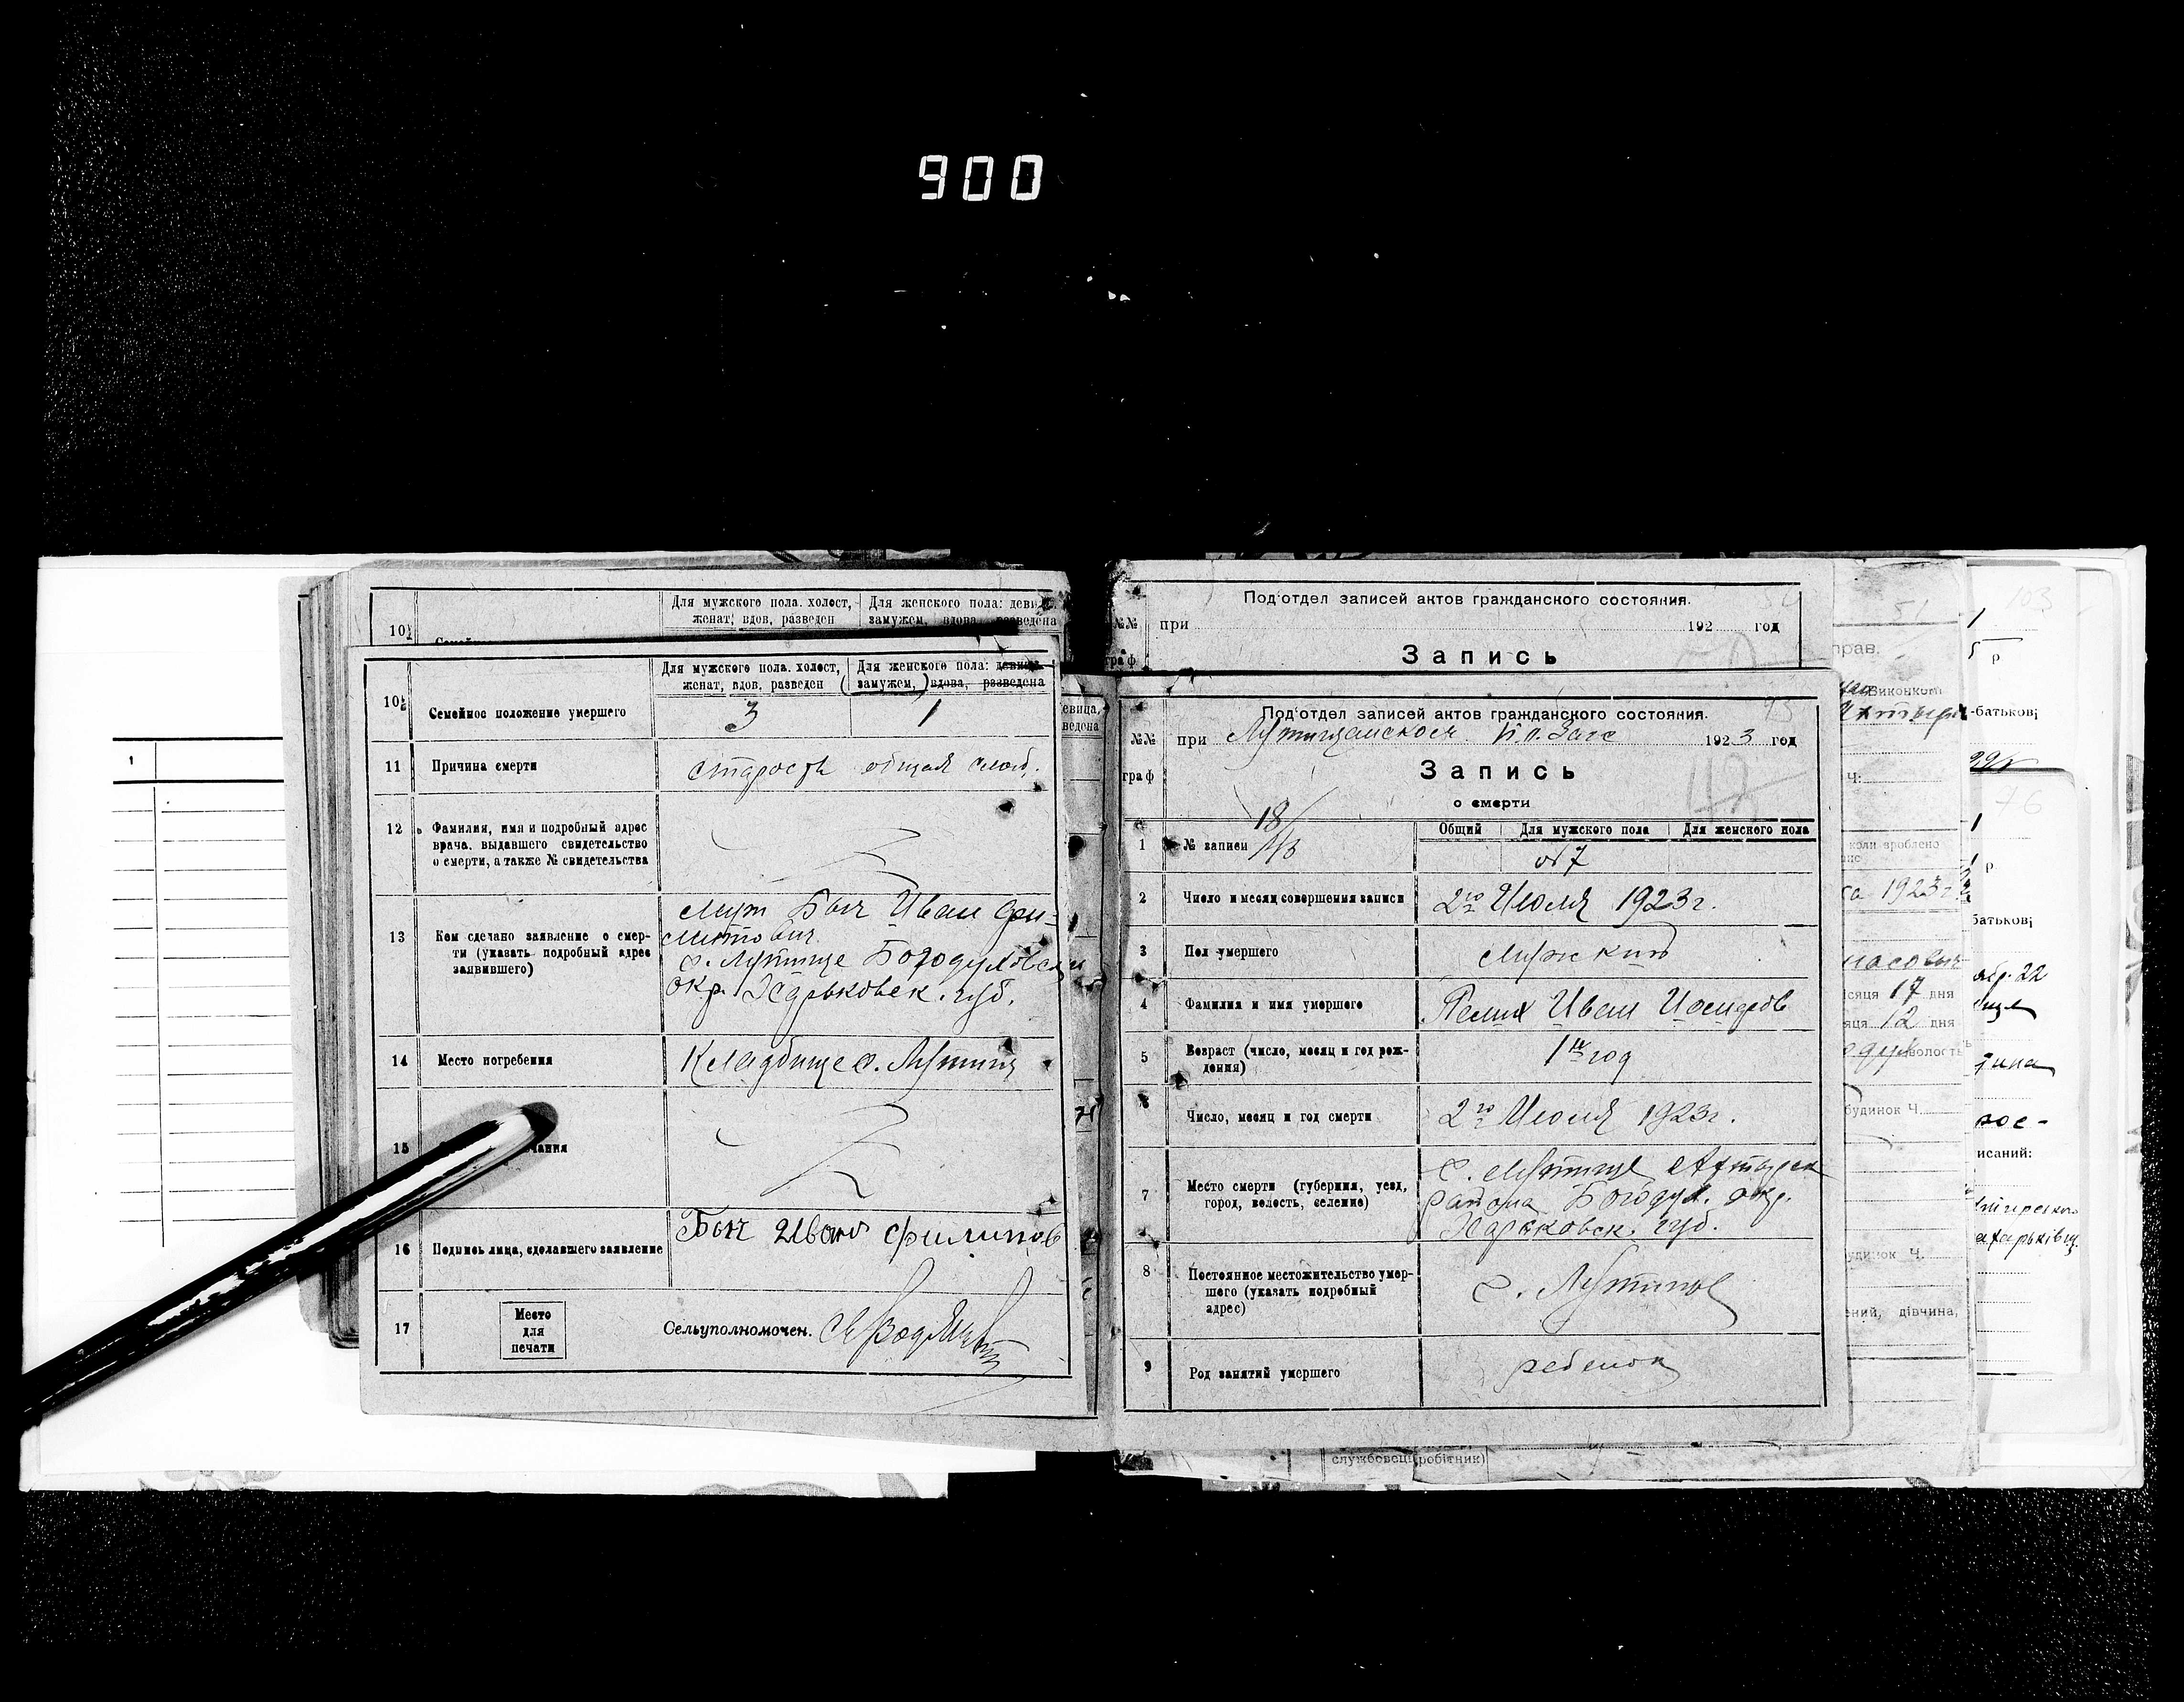 900
10½
Для мужского пола. холост,
женат, вдов, разведен
Для женского пола:
замужем, вдова, разведена
10½
Семейное положение умершего
Для мужского пола. холост,
женат, вдов, разведен
Для женского пола: девица,
(замужем,) вдова, разведена
3
1
11
Причина смерти
старость общая слаб.
12
Фамилия, имя и подробный адрес
врача, выдавшего свидетельство
о смерти, а также № свидетельства
13
Кем сделано заявление о смер-
ти (указать подробный адрес
заявившего)
муж Быч Иван Фи-
липович
с. Лутище Богодуховск
окр. Харьковск. губ.
14
Место погребения
Кладбище с. Лутищ
15
чания
16
Подпись лица, сделавшего заявление
Быч Иван Филипов
17
Место
для
печати
Сельуполномочен.
Под'отдел записей актов гражданского состояния.
№№
при 192 год
граф
Запись
Под'отдел записей актов гражданского состояния.
№№
при Лутищанском п. п. Загс 1923 год
граф
Запись
о смерти
1
№ записи
18/
Общий
Для мужского пола
Для женского пола
7
2
Число и месяц совершения записи
2го Июля 1923г.
3
Пол умершего
Мужской
4
Фамилия и имя умершего
Иван
5
Возраст (число, месяц и год рож-
дения)
1 год
6
Число, месяц и год смерти
2го Июля 1923г.
7
Место смерти (губерния, уезд,
город, волость, селение)
с. Лутище Ахтырск
района Богодух. окр.
Харьковск. губ.
8
Постоянное местожительство умер-
шего (указать подробный
адрес)
с. Лутище
9
Род занятий умершего
ребенок
51
прав.
Виконком
Ч:
коли зроблено
1923
сяця 17 дня
яця 12 дня
волость
будинок Ч.
удинок Ч.
дівчина,
службовець робітник)
103
р
-батькові
76
р
батькові
22
исаний:
1